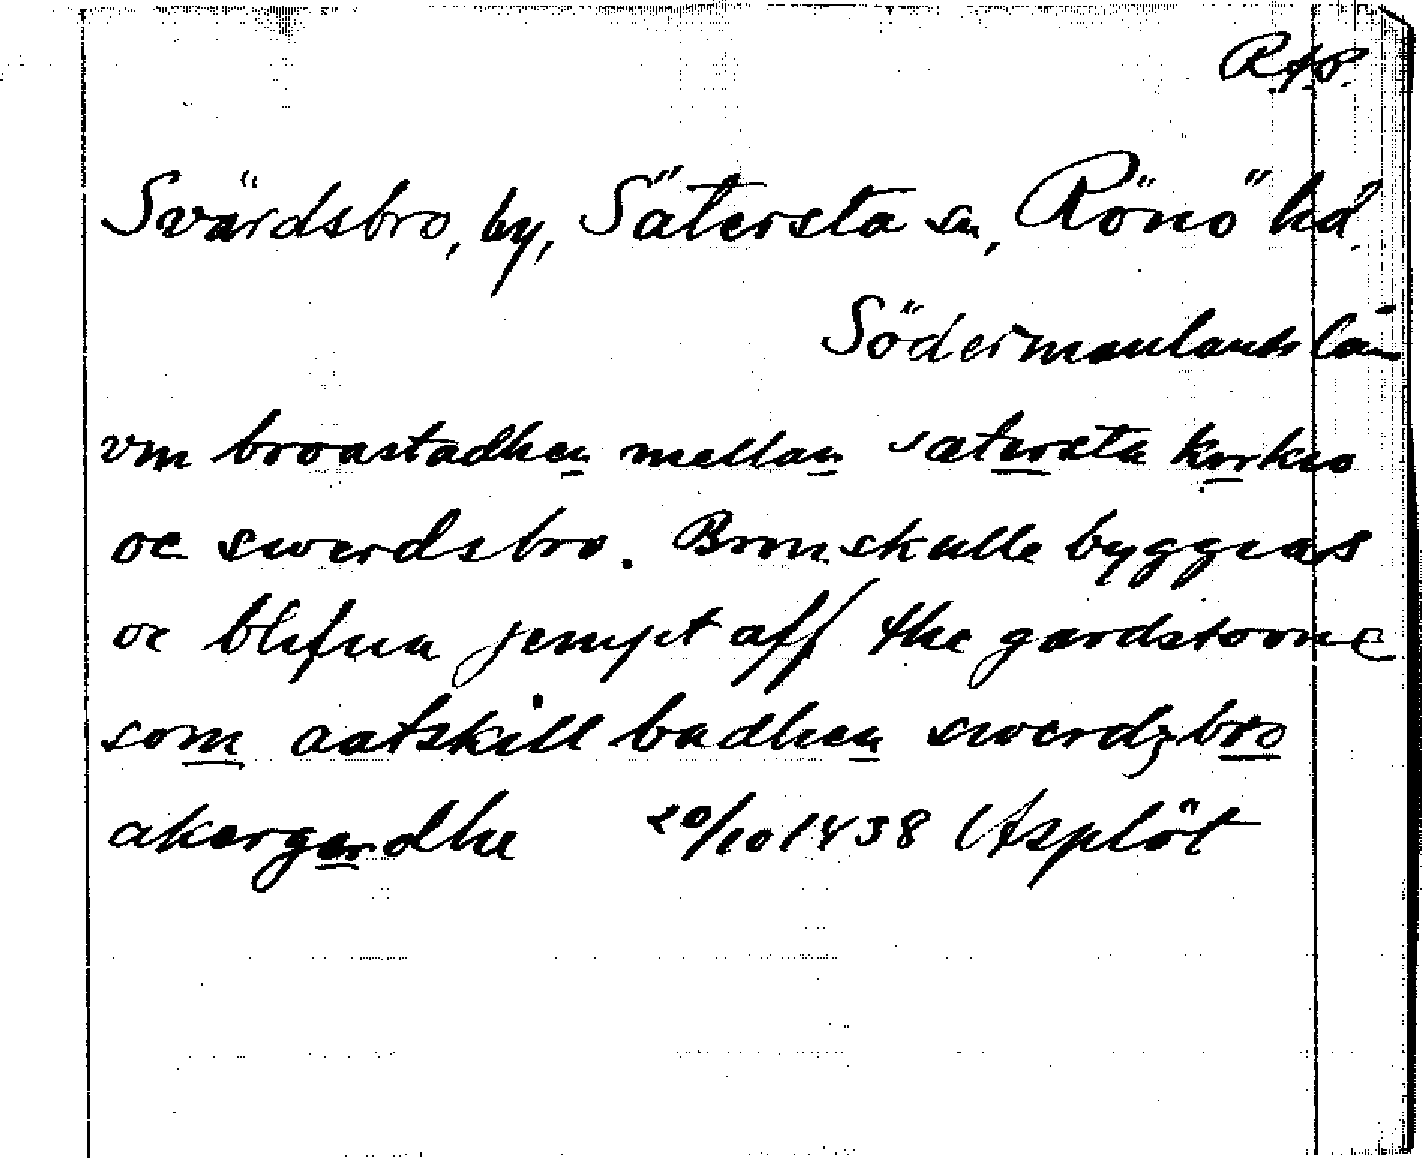 RAP.
Svärdsbro, by, Sätersta sn, Rönö hd.
Södermanlands län
vm broastadhen mellan sætersta kyrkio
oc swerdsbro. Bron skulle byggias
oc blifua jempt aff the gardstorne
som aatskill badhen swerdzbro
akergerdhe 20/10 1438 Asplöt